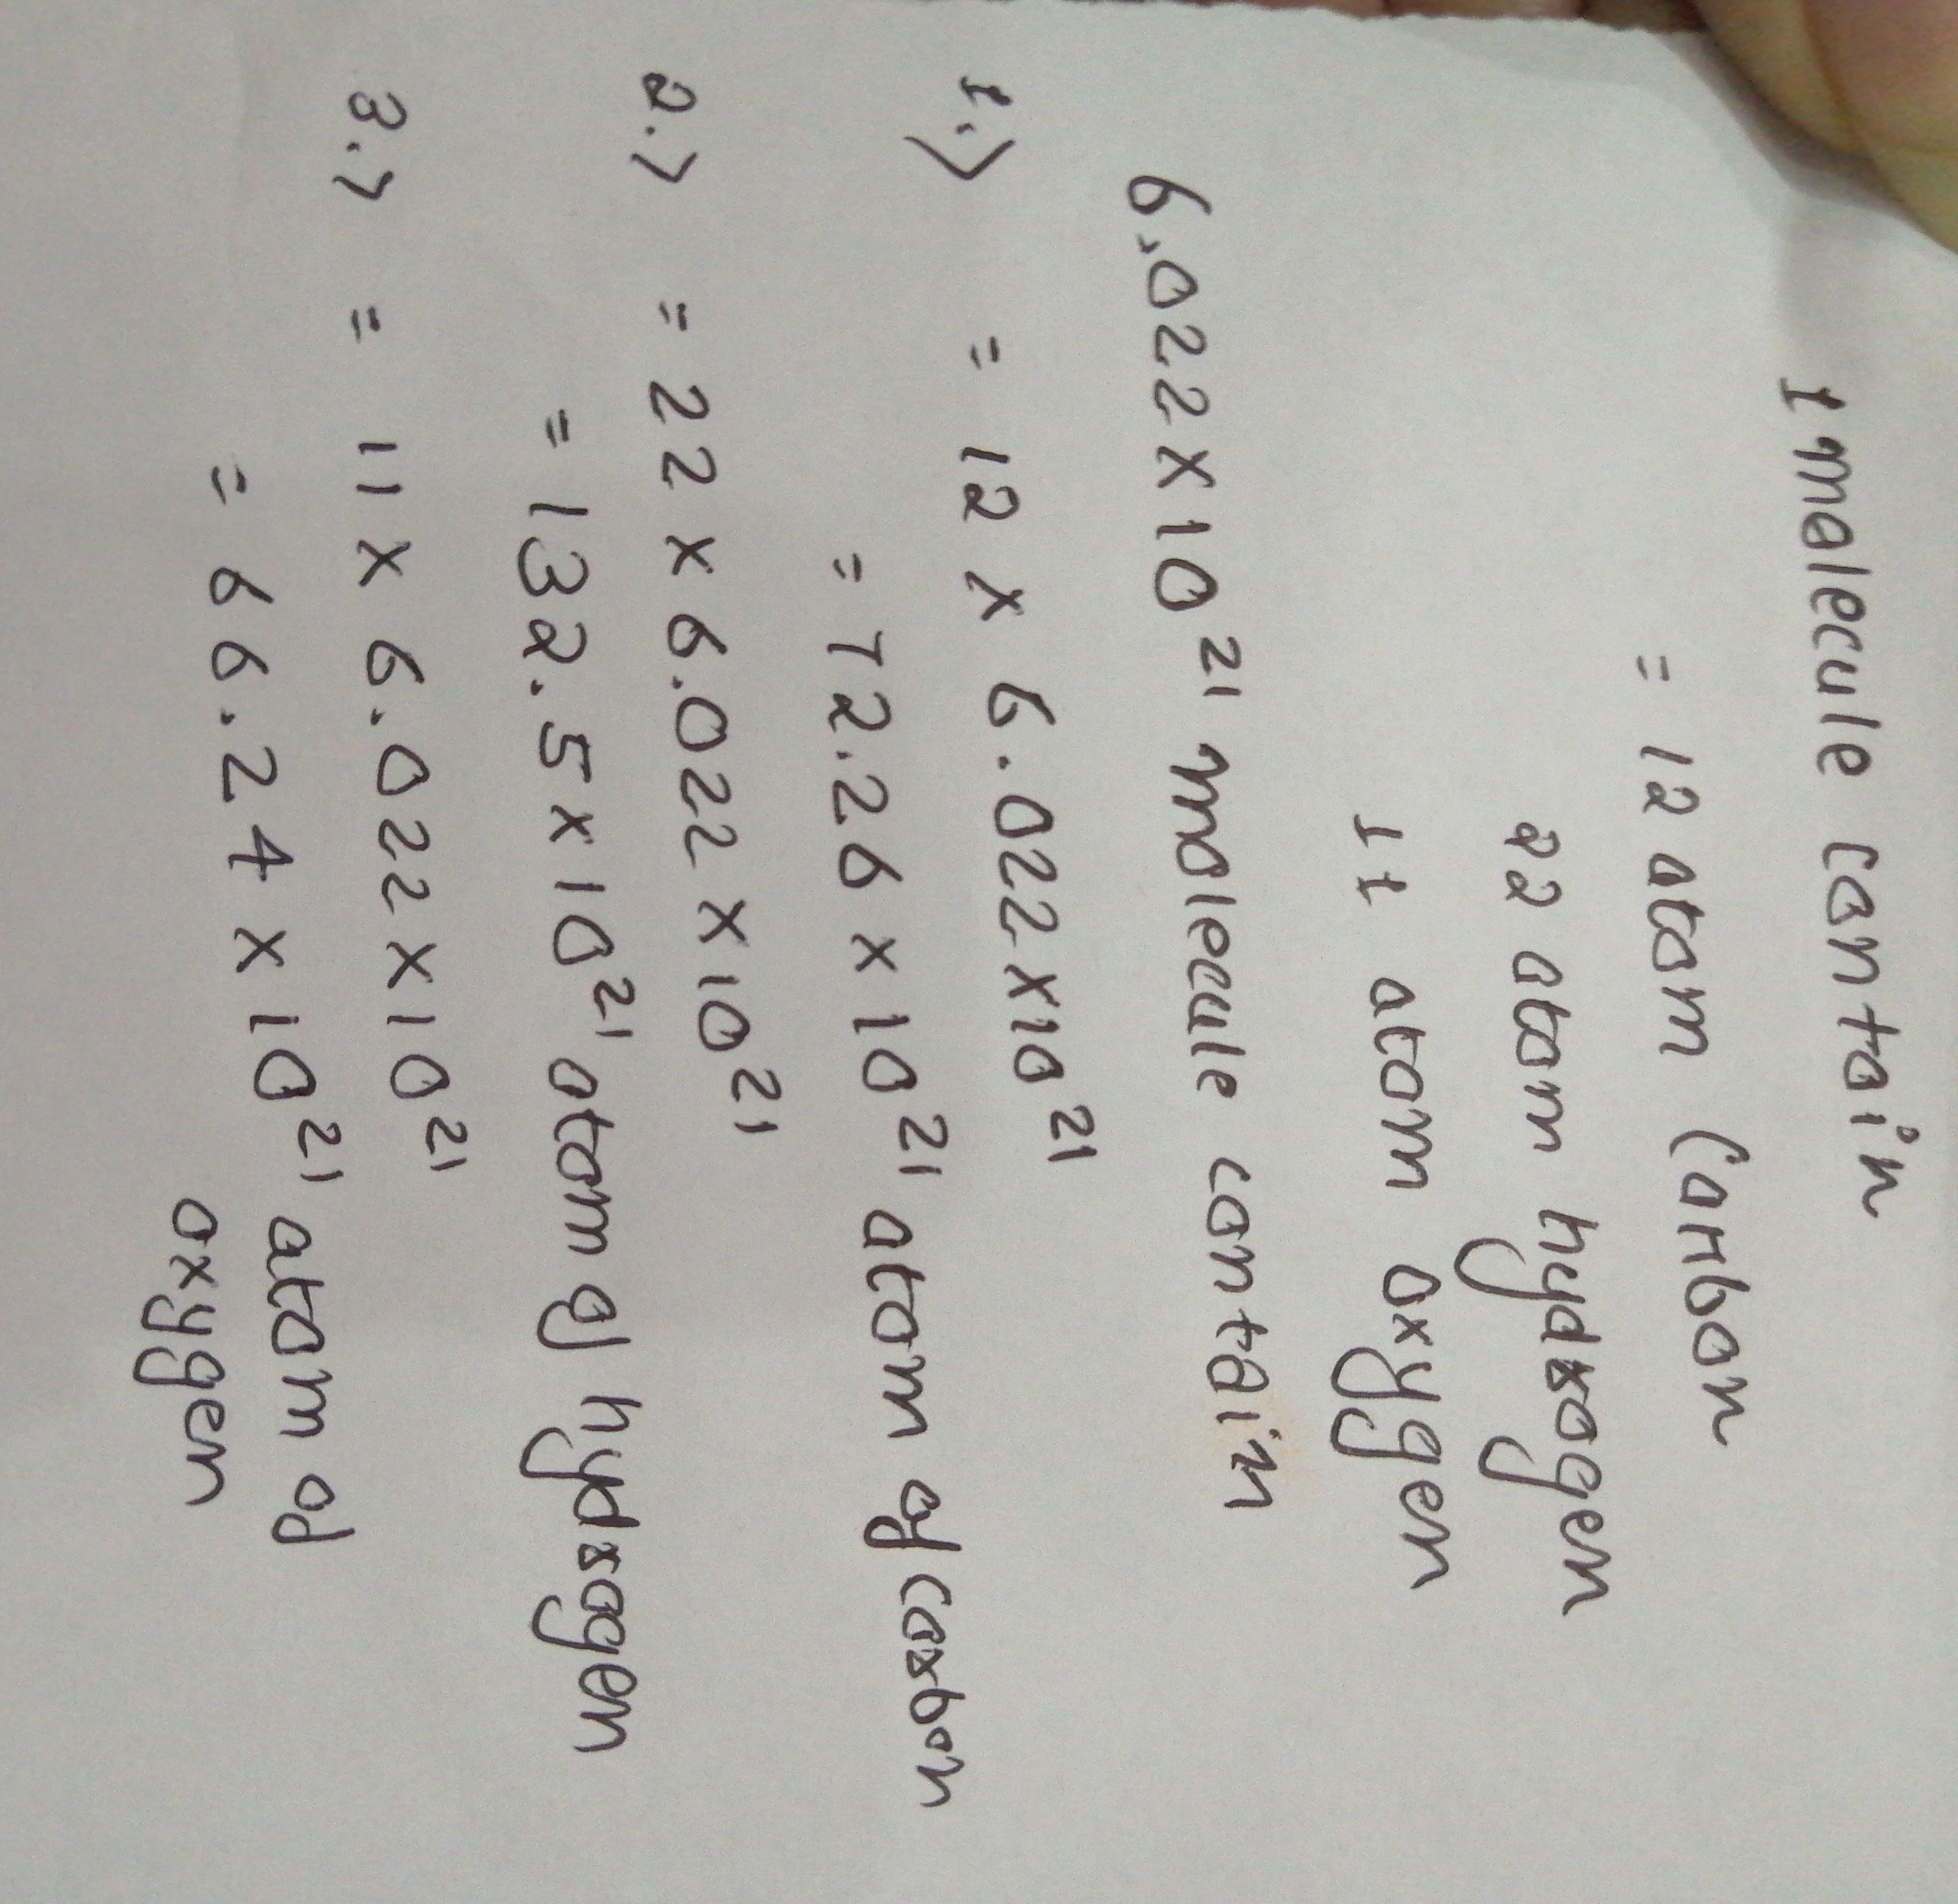 1 molecule contain
= 12 atom Carbon
22 atom hydrogen
11 atom oxygen
6.022 x 10²¹ molecule contain
1.> = 12 x 6.022 x 10²¹
= 72.26 x 10²¹ atom of carbon
2.> = 22 x 6.022 x 10²¹
= 132.5 x 10²¹ atom of hydrogen
3.> = 11 x 6.022 x 10²¹
= 66.24 x 10²¹ atom of
oxygen